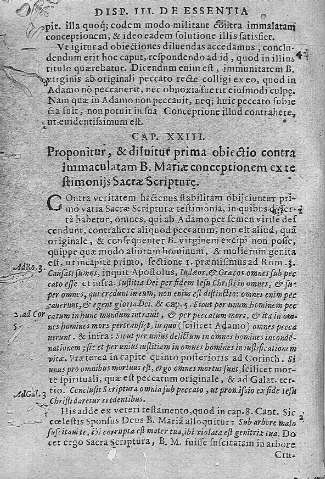 DISP. III. DE ESSENTIA
pit. illa quoq; eodem modo militaue contra immalatam
conceptionem, & ideo eadem solutione illis satisfiet.
Vt igitur ad obiectiones diluendas accedamus, conclu-
dendum erit hoc caput, respondendo ad id, quod in illius
titulo quærebatur. Dicendum enim est, immunitatem B.
virginis ab originali peccato recte colligi ex eo, quod in
Adamo non peccauerit, nec obnoxia fuerit eiusmodi culpæ.
Nam quæ in Adamo non peccauit, neq; huic peccato subie
cta fuit, non potuit in sua Conceptione illud contrahere,
ut euidentissimum est.
CAP. XXIII.
Proponitur, & disuitur prima obiectio contra
immaculatam B. Mariæ conceptionem ex te
stimonijs Sacræ Scripturæ.
Contra veritatem hactenus stabilitam obijciuntur pri-
mo varia Sacræ Scripturæ testimonia, in quibus
habetur, omnes, qui ab Adamo per semen virile def
cendunt, contrahere aliquod peccatum, non est aliud, quã
originale, & consequenter B. virginem excipi non posse,
quippe quæ modo aliorum hominum, & mulierum genita
est, ut principio primo, sectione 1. præmisimus ad Rom. 3.
Ad Ro. 3.
Causati sumus, inquit Apostolus, Iudæos, & Græcos omnes sub pec
cato esse & infra: iustitia Dei per fidem Iesu Christi in omnes, & su-
per omnes, qui credunt in eum, non enim est distinctio: omnes enim pec
cauerunt, & egent gloria Dei. & cap. 5. sicut per unum hominem pec
catum in hunc mundum intrauit, & per peccatum mors, & ita in om-
nes homines mors pertransijt, in quo (scilicet Adamo) omnes pecca
uerunt. & infra: sicut per unius delictum in omnes homines in condé-
nationem: sic & per unius iustitiam in omnes homines in iustificationem
vitæ. Præterea in capite quinto posterioris ad Corinth. Si
2. ad Cor
5.
unus pro omnibus mortuus est, ergo omnes mortui sunt, scilicet mor-
te spirituali, quæ est peccatum originale, & ad Galat. ter-
tio. Conclusit Scriptura omnia sub peccato, ut promissio ex fide Iesu
Ad Gal. 3
Christi daretur credentibus.
His adde ex veteri testamento, quod in cap. 8. Cant. Sic
cœlestis Sponsus Deus B. Mariã alloquitur: Sub arbore malo
suscitaui te, ibi corrupta est mater tua, ibi violata est genitrix tua. Do
cet ergo Sacra Scriptura, B. M. fuisse suscitatam in arbore
Cru-